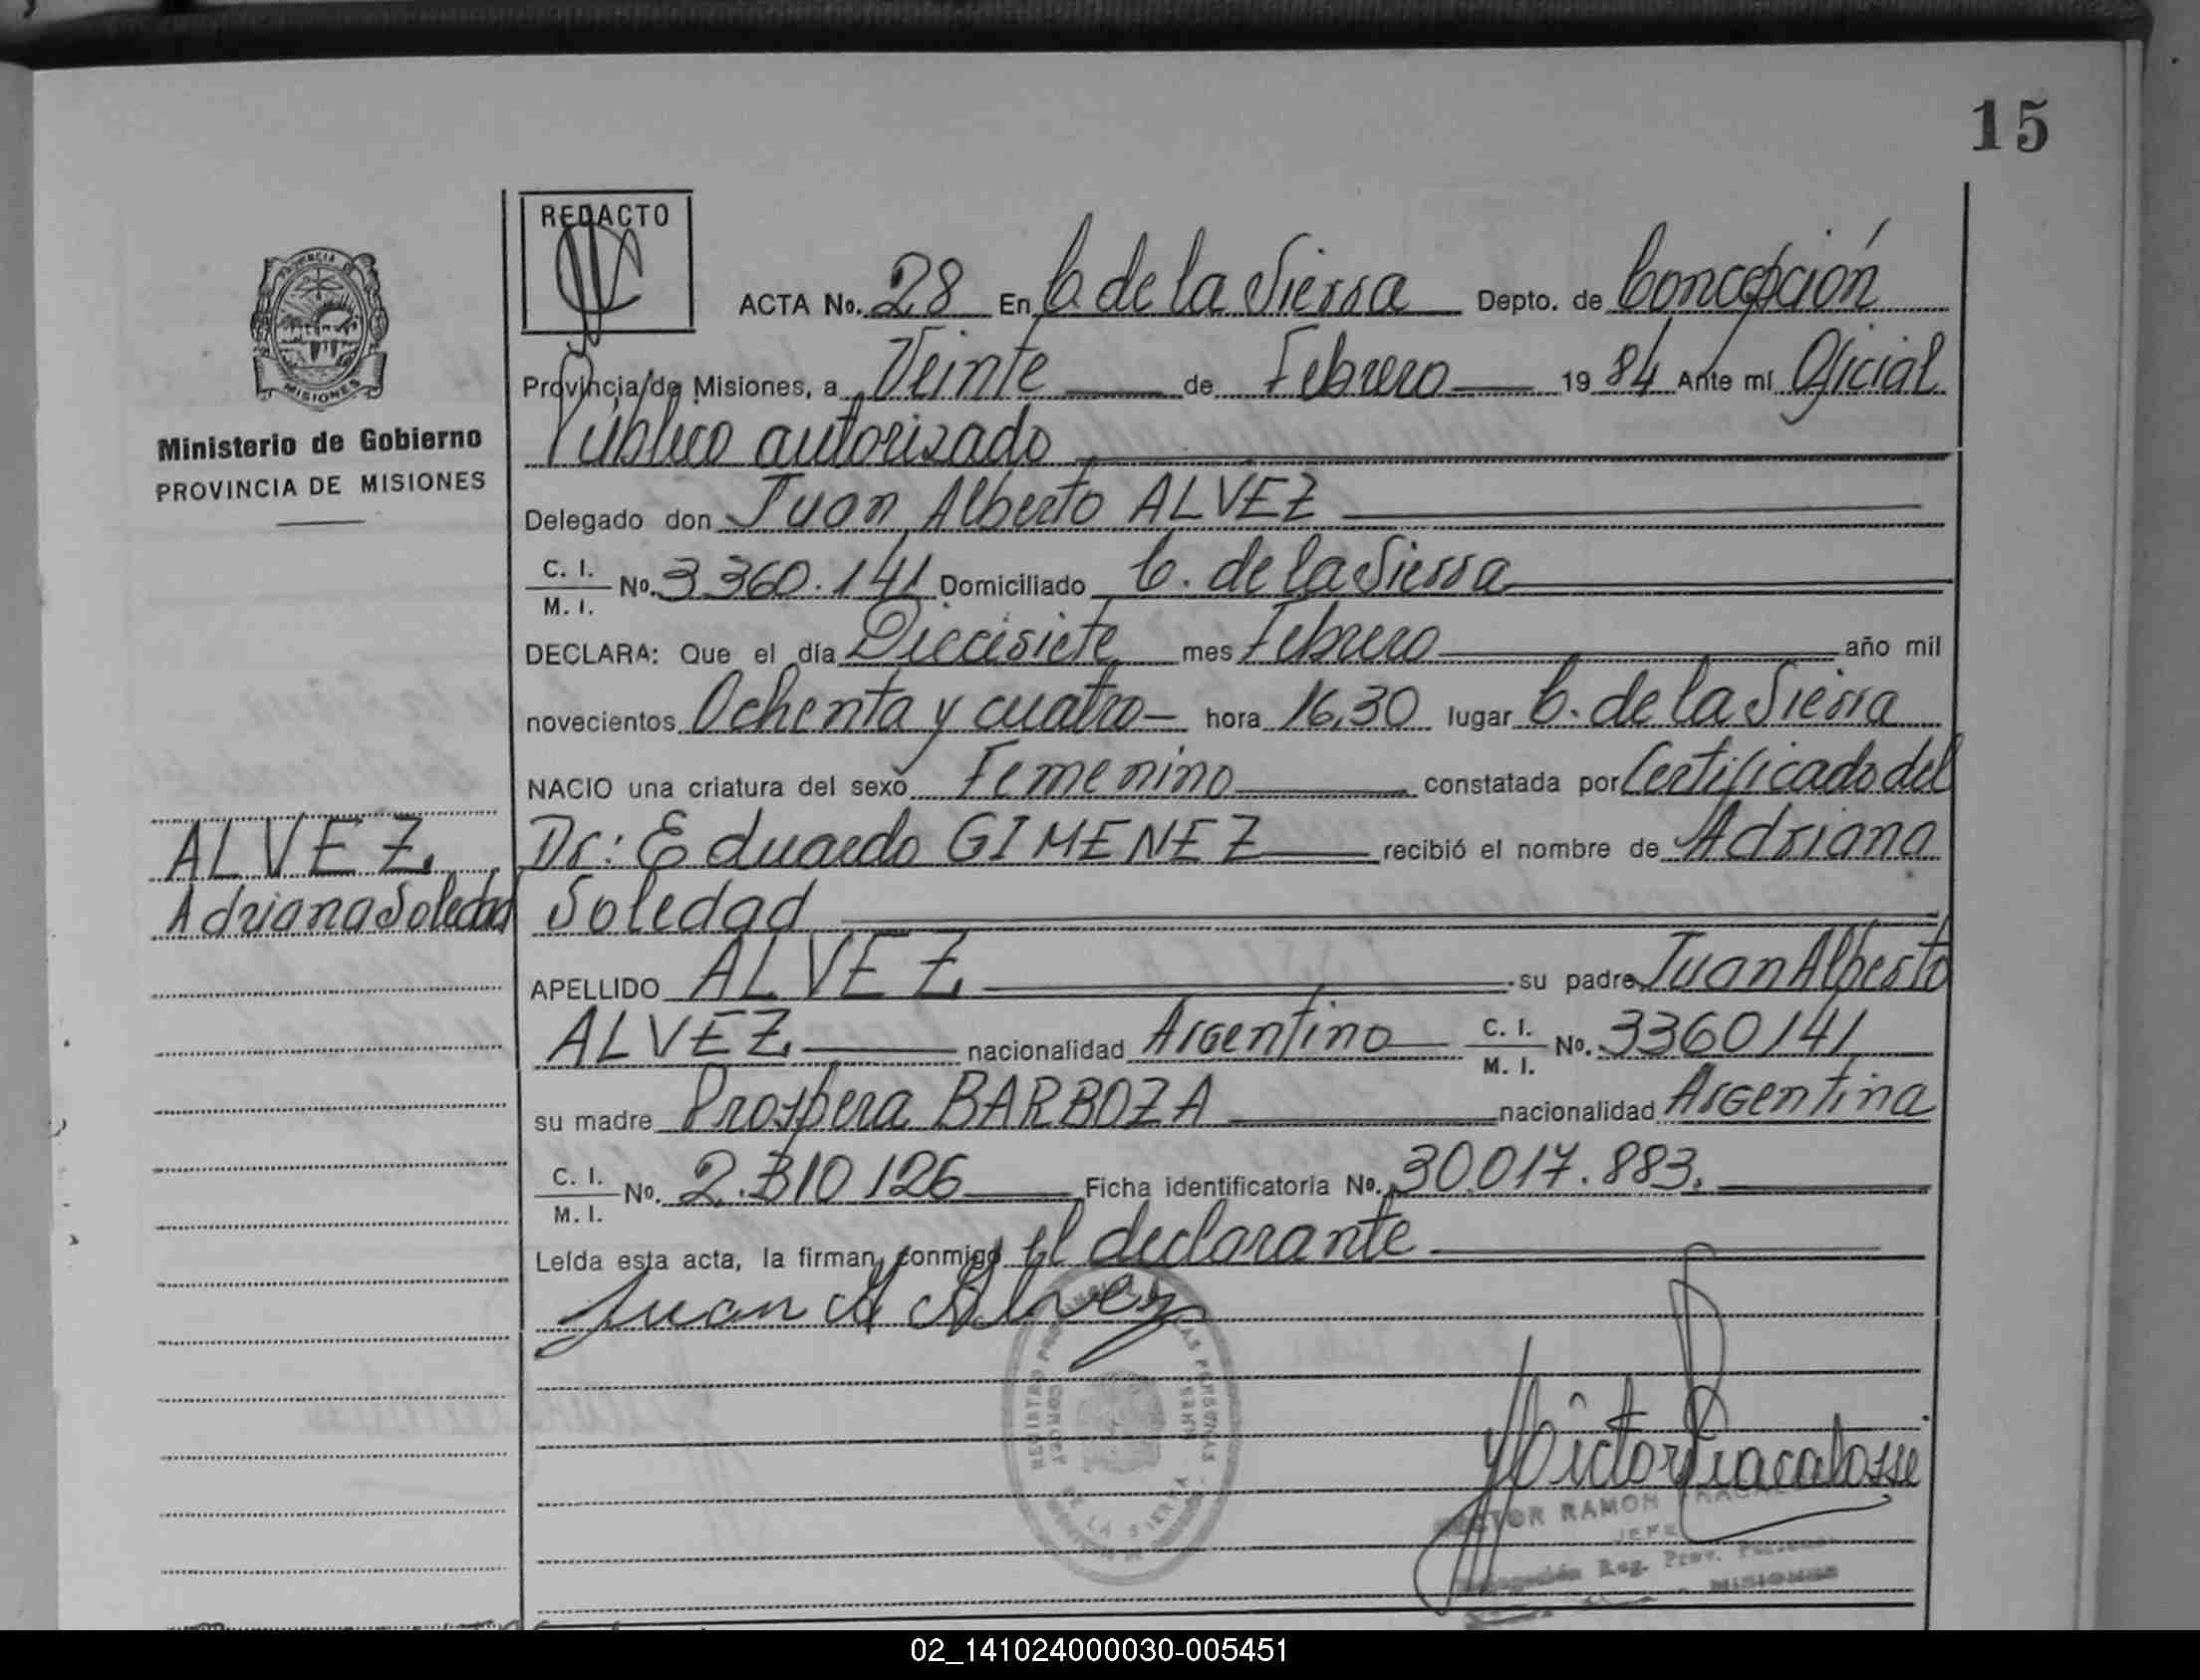 15
REDACTO
ACTA No. 28 En C. de la Sierra Depto. de Concepción
Provincia de Misiones, a Veinte de Febrero 1984 Ante mí Oficial
Público autorizado
Delegado don Juan Alberto ALVEZ
C. I. / M. I. No. 3.360.141 Domiciliado C. de la Sierra
DECLARA: Que el día Diecisiete mes Febrero año mil
novecientos Ochenta y cuatro hora 16,30 lugar C. de la Sierra
NACIO una criatura del sexo Femenino constatada por Certificado del
Dr: Eduardo GIMENEZ recibió el nombre de Adriana
Soledad
APELLIDO ALVEZ su padre Juan Alberto
ALVEZ nacionalidad Argentino C. I. / M. I. No. 3360141
su madre Prospera BARBOZA nacionalidad Argentina
C. I. / M. I. No. 2.310126 Ficha identificatoria No. 30.017.883.
Leída esta acta, la firman conmigo el declarante
Juan A Alvez
PROVINCIA
MISIONES
Ministerio de Gobierno
PROVINCIA DE MISIONES
ALVEZ
Adriana Soledad
DE LA SIERRA
RAMON
JEFE
Reg. Prov.
MISIONES
02_141024000030-005451